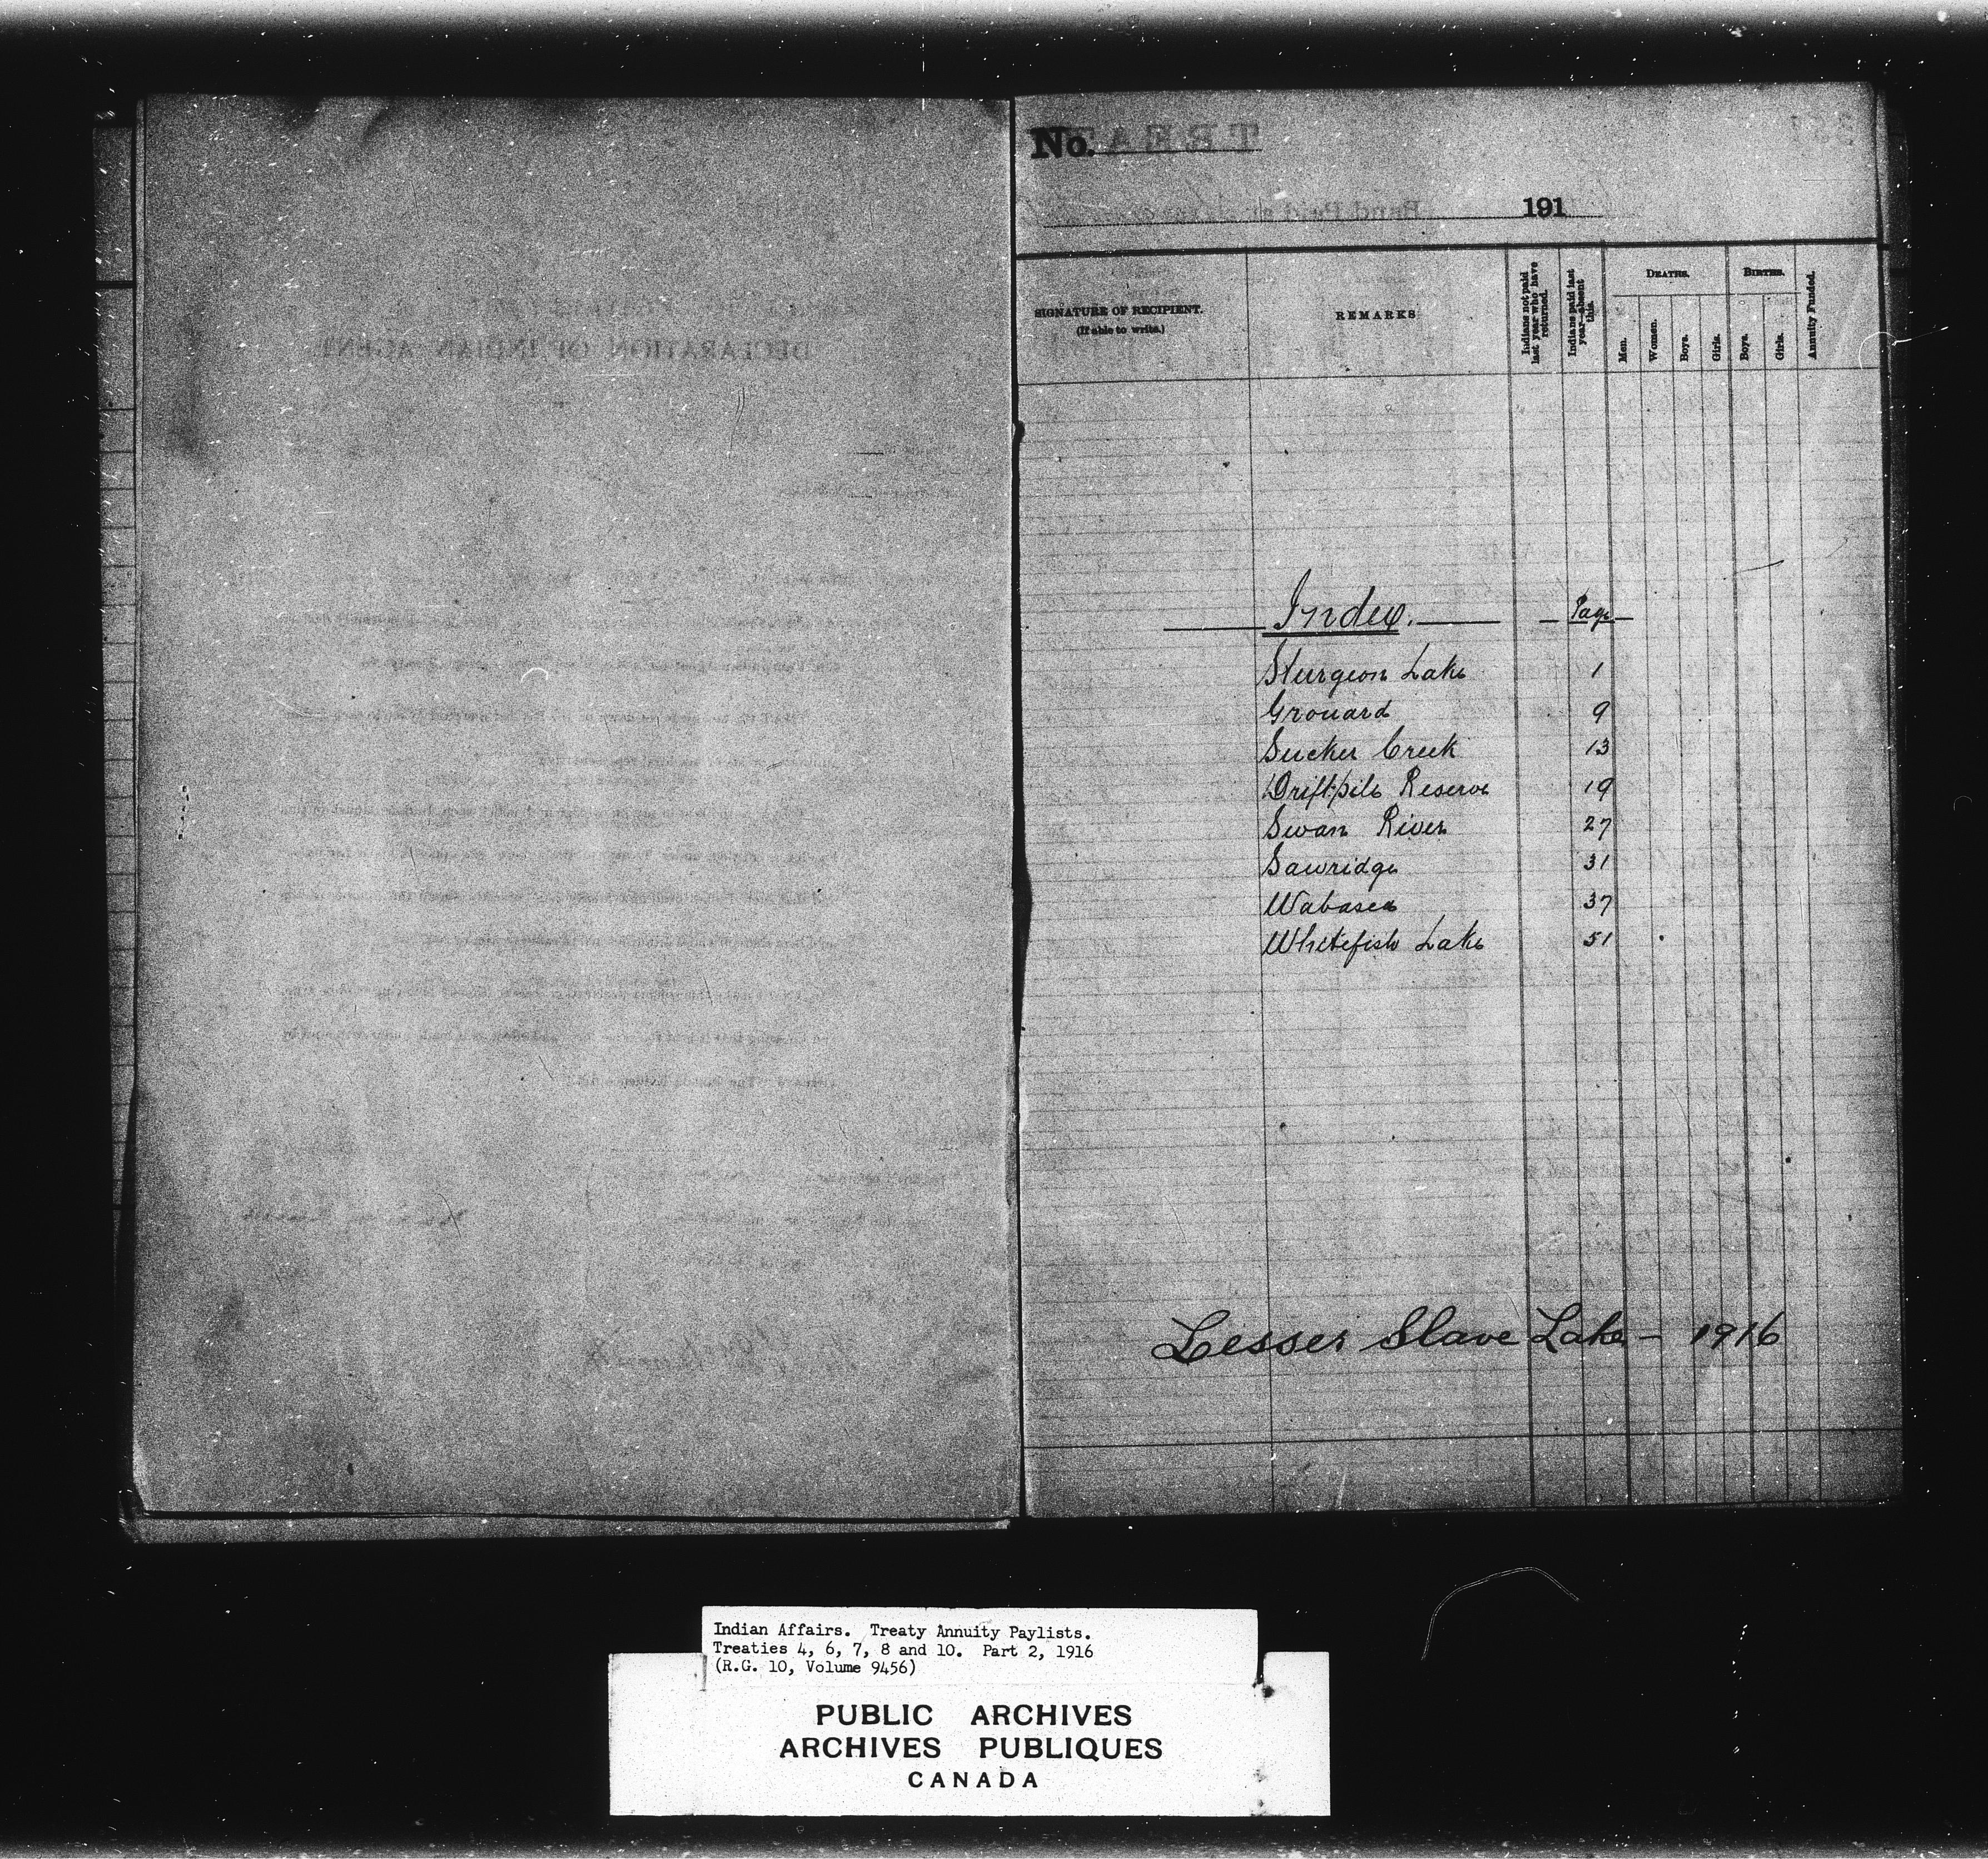 No.
191
SIGNATURE OF RECIPIENT.
(If able to write.)
REMARKS
Indians not paid last year who have returned.
Indians paid last year—absent this.
DEATHS.
Men.
Women.
Boys.
Girls.
BIRTHS.
Boys.
Girls.
Annuity Funded.
Index. Page
Sturgeon Lake 1
Grouard 9
Sucker Creek 13
Driftpile Reserve 19
Swan River 27
Sawridge 31
Wabasca 37
Whitefish Lake 51
Lesser Slave Lake - 1916
Indian Affairs. Treaty Annuity Paylists.
Treaties 4, 6, 7, 8 and 10. Part 2, 1916
(R.G. 10, Volume 9456)
PUBLIC ARCHIVES
ARCHIVES PUBLIQUES
CANADA